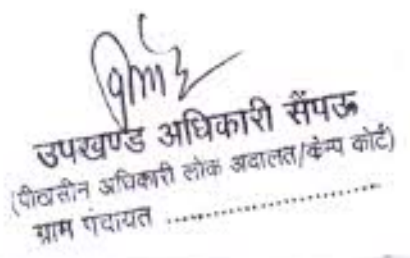 उपखण्ड अधिकारी सैंपऊ
(पीठासीन अधिकारी लोक अदालत/कैम्प कोर्ट)
ग्राम पंचायत ..............................